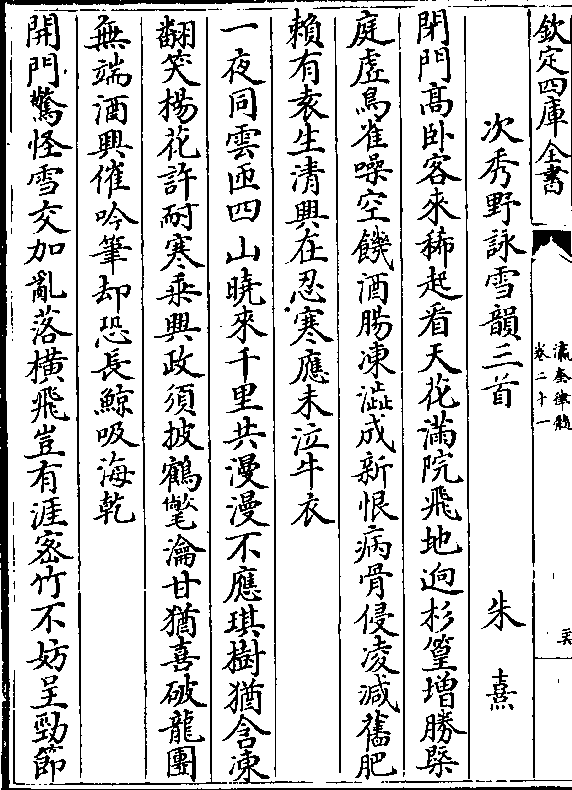 欽定四庫全書
瀛奎律髓
卷二十一
次秀野詠雪韻三首　朱熹
閉門高卧客來稀起看天花滿院飛地逈杉篁增勝槩
庭虛鳥雀噪空饑酒腸凍澁成新恨病骨侵凌減舊肥
賴有袁生清興在忍寒應未泣牛衣
一夜同雲匝四山曉來千里共漫漫不應琪樹猶含凍
翻笑楊花許耐寒乗興政須披鶴氅瀹甘猶喜破龍團
無端酒興催吟筆却恐長鯨吸海乾
開門驚怪雪交加亂落橫飛豈有涯宻竹不妨呈勁節